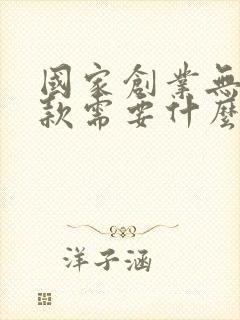 國家創業無
款需要什麼
洋子涵